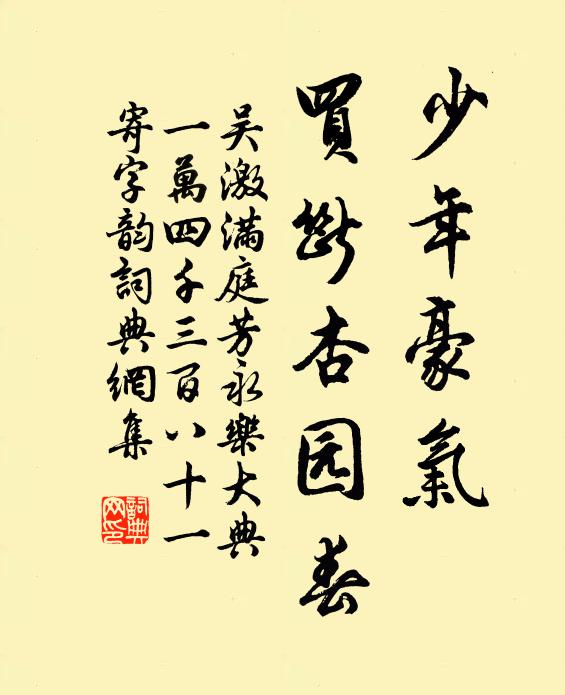 少年豪氣
買斷杏园春
吴激滿庭芳永樂大典
一萬四千三百八十一
寄字韵詞典網集
詞典網印